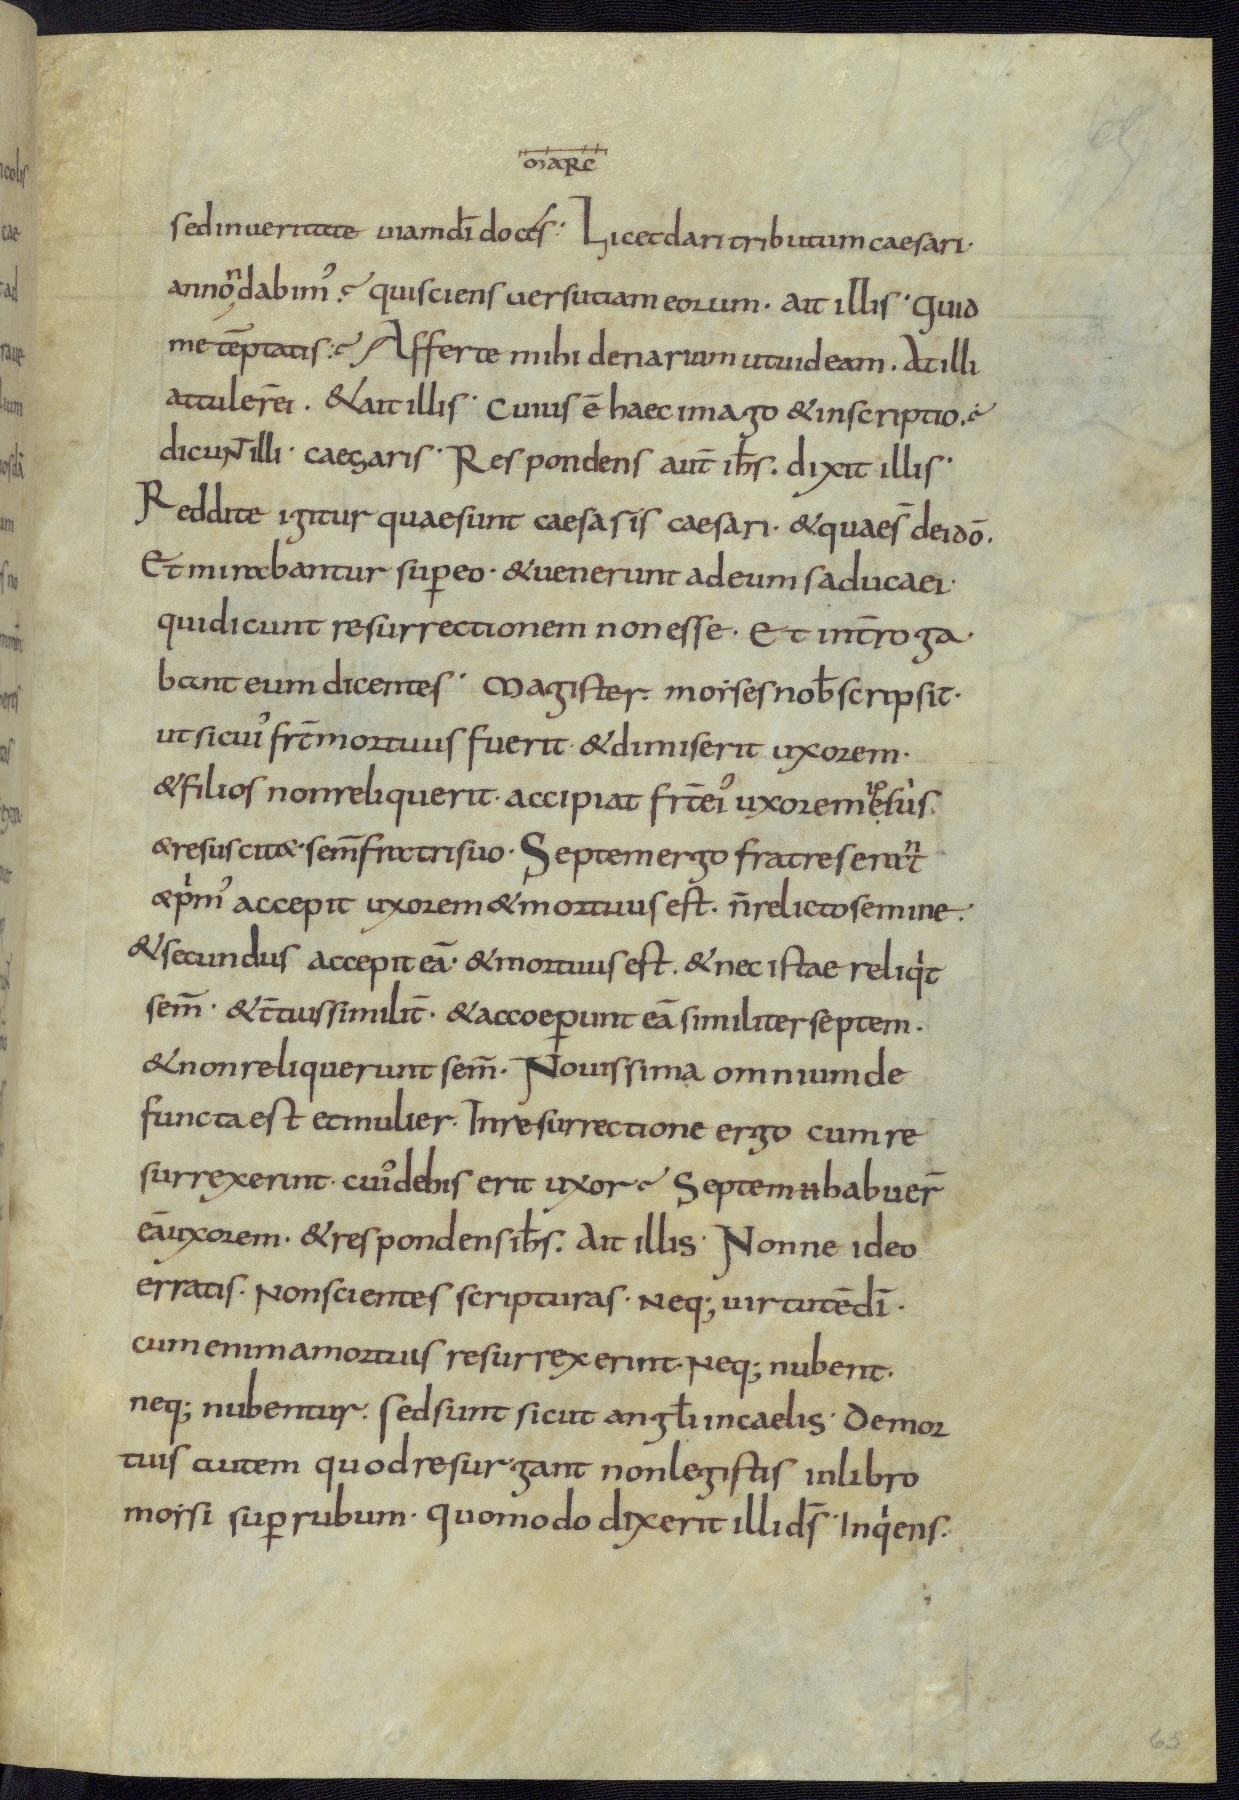 marc
sed in ueritate uiam dī doces. Licet dari tributum caesari.
an non dabimꝰ. qui sciens uersutiam eorum. ait illis. Quid
me tēptatis. Afferte mihi denarium ut uideam. At illi
attulerēi. & ait illis. Cuius ē haec imago & inscriptio.
dicuNT illi. caesaris. Respondens aut̄ ih̄s. dixit illis.
Reddite igitur quae sunt caesasis caesari. & quae s̄ dei dō.
Et mirabantur sup̲ eo. & uenerunt ad eum saducaei.
qui dicunt resurrectionem non esse. Et int̄roga
bant eum dicentes. Magister. moises nob̄ scripsit.
ut si cuiꝰ frt̄ mortuus fuerit. & dimiserit uxorem.
& filios non reliquerit. accipiat frt̄ eiꝰ uxorem ipsius.
& resuscit&. sem̄ fratri suo. Septem ergo fratres erant
& pimꝰ accepit uxorem & mortuus est. n̄ relicto semine.
& secundus accepit eā. & mortuus est. & nec istae reliqit
sem̄. & t̄tius similit̄. & accoep̲unt eā similiter septem.
& non reliquerunt sem̄. Nouissima omnium de
functa est et mulier. In resurrectione ergo cum re
surrexerint. cuiꝰ de his erit uxor. Septem n habuer̄
eā uxorem. & respondens ih̄s. Ait illis. Nonne ideo
erratis. Non scientes scripturas. Neq; uirtutē dī.
cum enim a mortuis resurrexerint. Neq; nubent.
neq; nubentur. sed sunt sicut angl̄i in caelis. De mor
tuis autem quod resurgant non legistis in libro
moisi sup̲ rubum. quomodo dixerit illi ds̄. Inqiens.
65